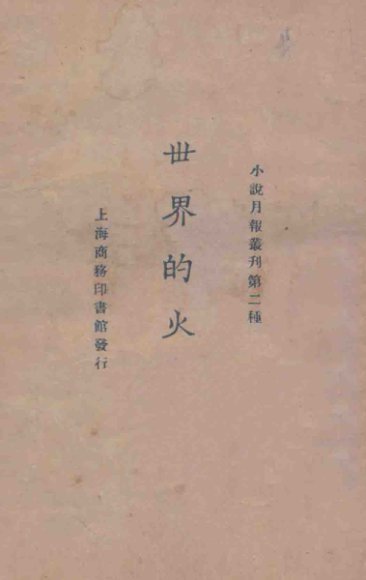 小說月報叢刊第二種
世界的火
上海商務印書館發行